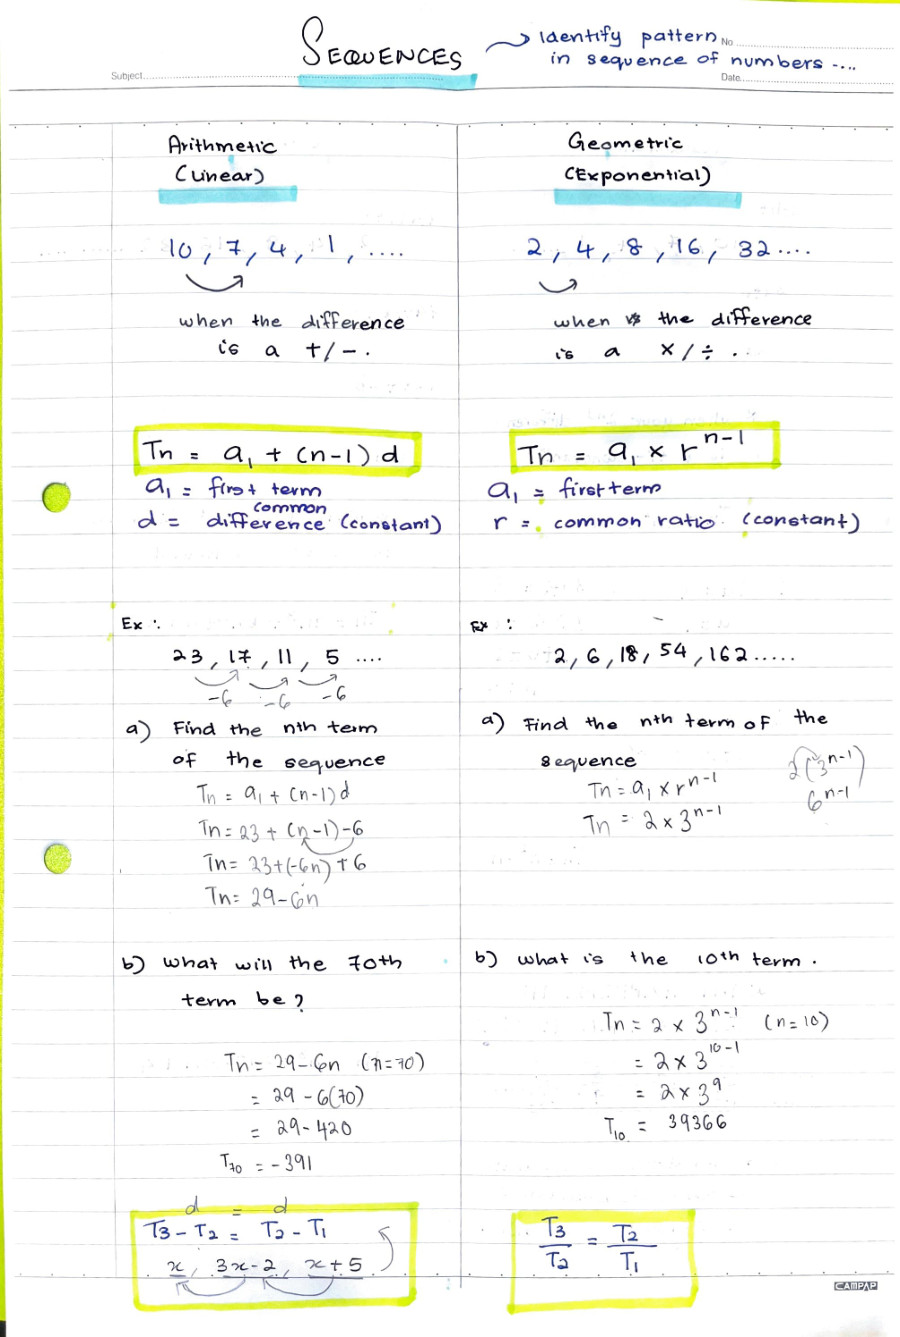 SEQUENCES
→ Identify pattern
in sequence of numbers ....
No
Subject
Date
Arithmetic
(Linear)
10, 7, 4, 1, ....
when the difference
is a +/-.
Tn = a₁ + (n-1) d
a₁ = first term
common
d = difference (constant)
Ex:
23, 17, 11, 5 ....
-6 -6 -6
a) Find the nth term
of the sequence
Tn = a₁ + (n-1)d
Tn = 23 + (n-1)-6
Tn = 23+(-6n)+6
Tn = 29-6n
b) What will the 70th
term be?
Tn = 29-6n (n=70)
= 29-6(70)
= 29-420
T₇₀ = -391
d = d
T₃-T₂ = T₂-T₁
x, 3x-2, x+5
Geometric
(Exponential)
2, 4, 8, 16, 32....
when the difference
is a ×/÷ ..
Tn = a₁ × r^(n-1)
a₁ = first term
r = common ratio (constant)
Ex:
2, 6, 18, 54, 162.....
a) Find the nth term of the
sequence
Tn = a₁ × r^(n-1)
Tn = 2 × 3^(n-1)
2(3^(n-1))
6^(n-1)
b) What is the 10th term.
Tn = 2 × 3^(n-1) (n=10)
= 2 × 3^(10-1)
= 2 × 3⁹
T₁₀ = 39366
T₃/T₂ = T₂/T₁
CAMPAP